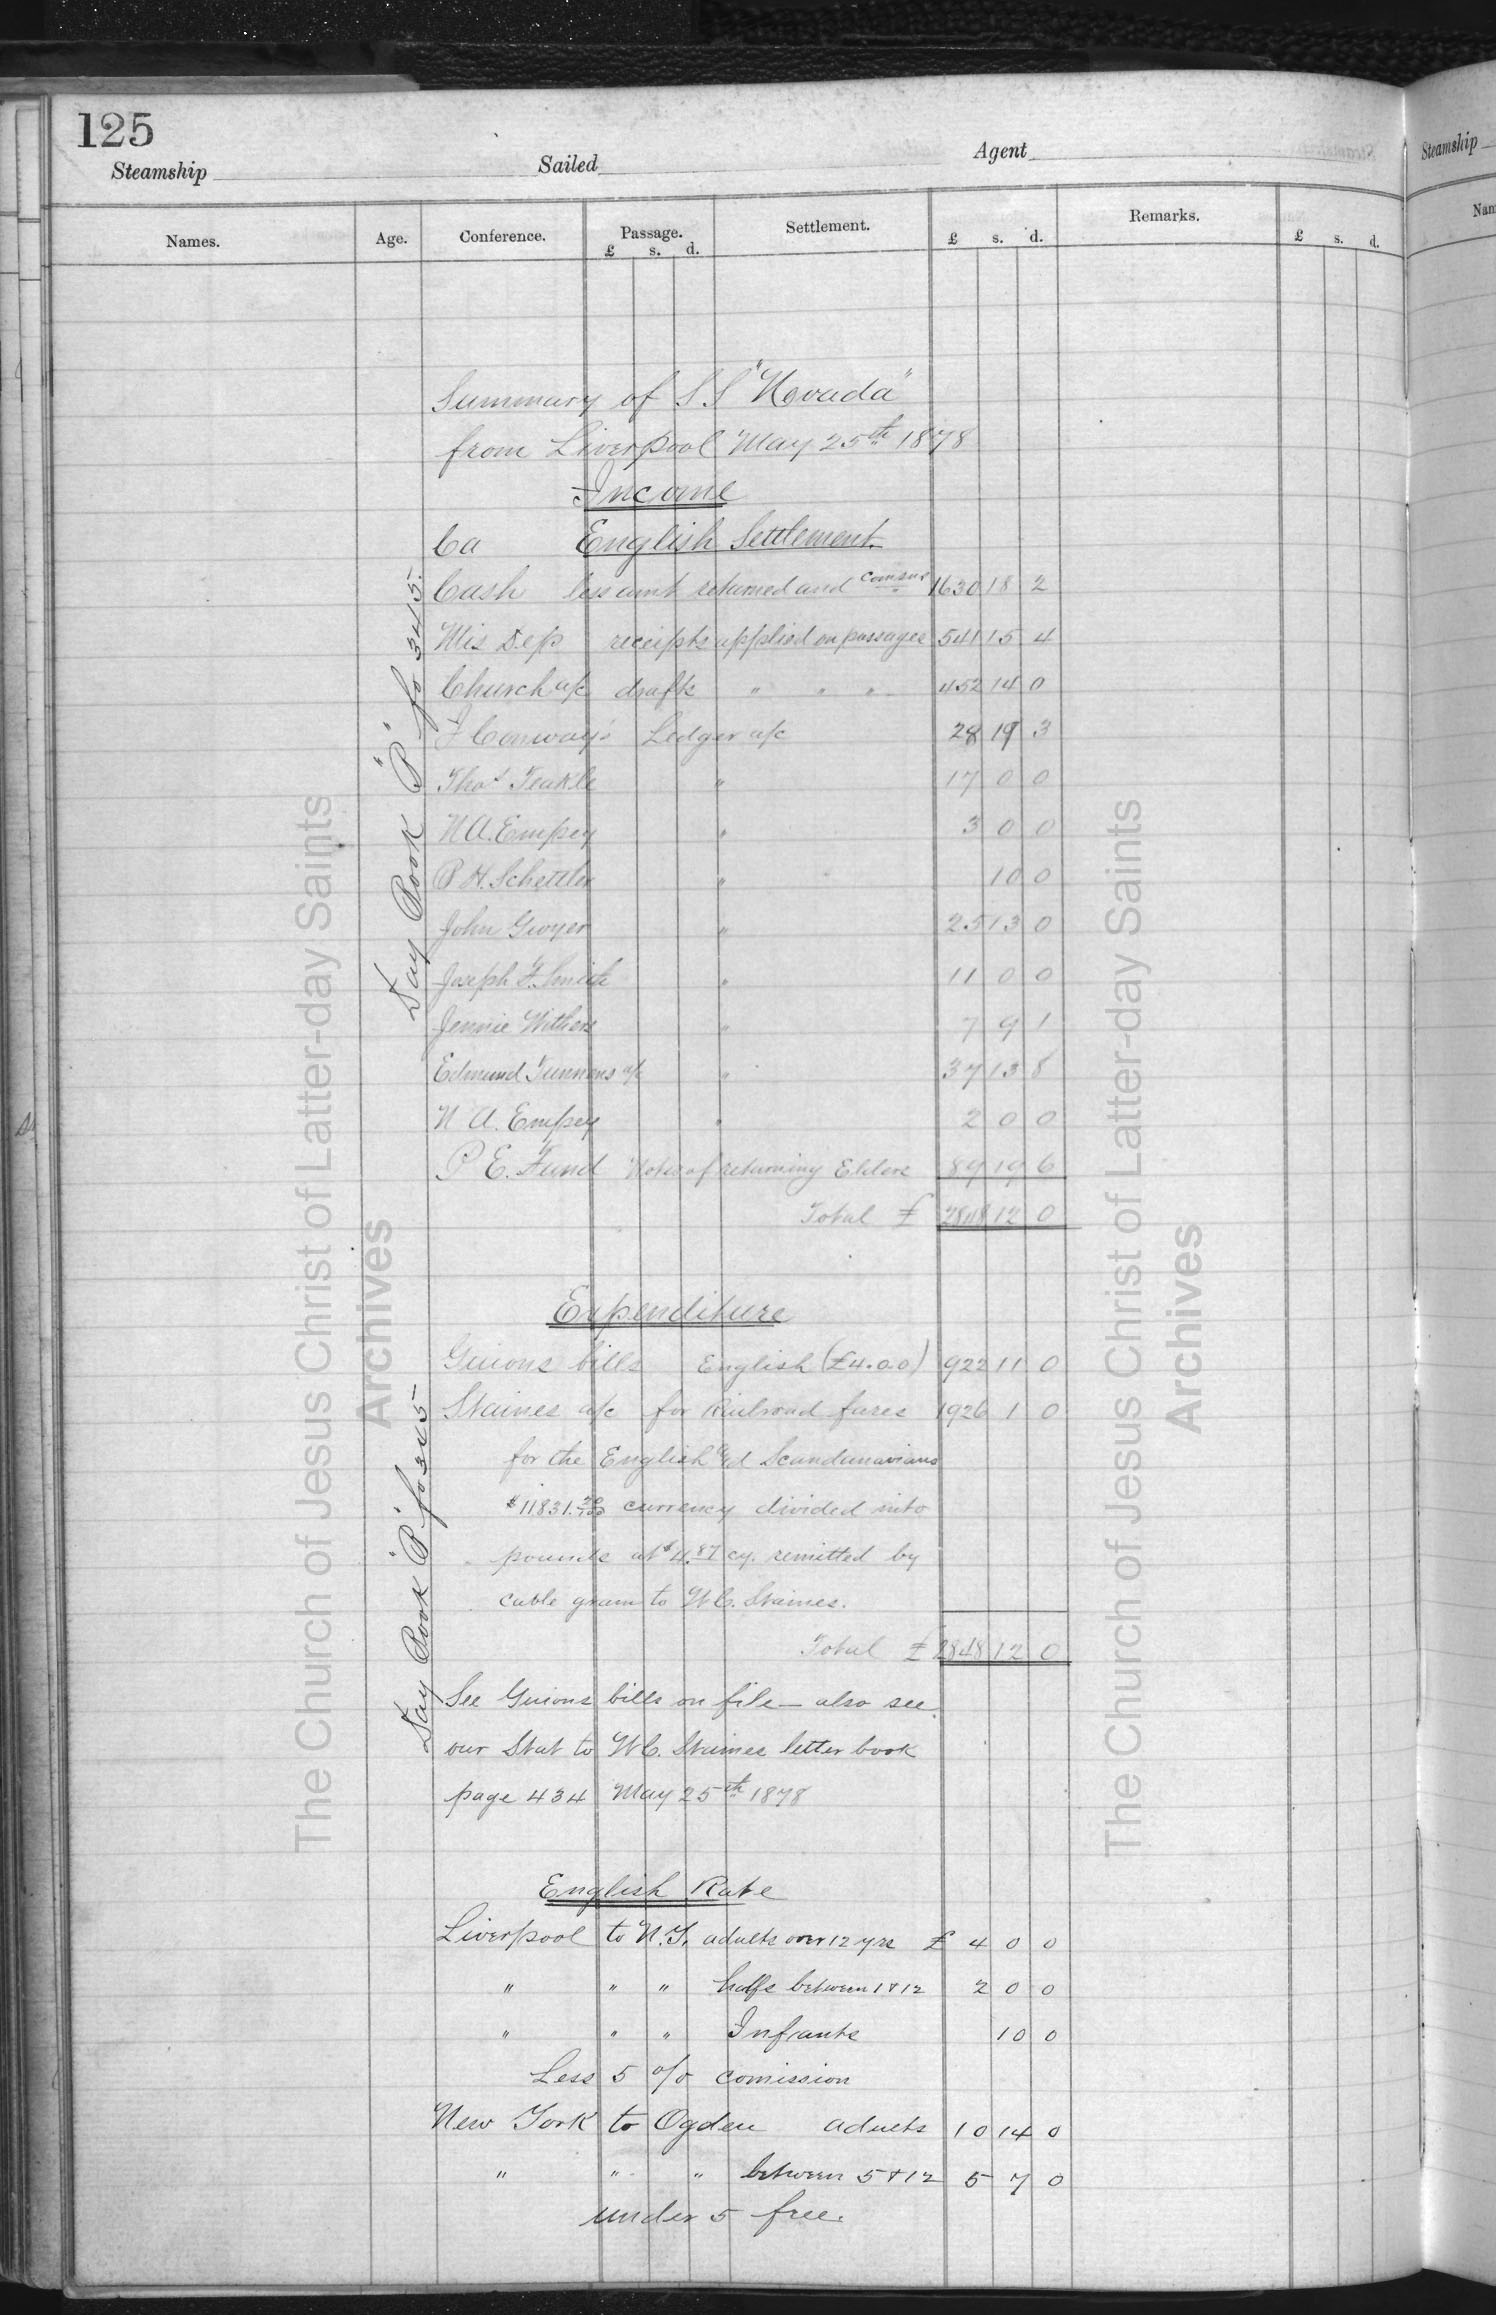 125
Steamship Sailed Agent
Names. Age. Conference. Passage. Settlement. £ s. d. Remarks. £ s. d.
£ s. d.
Summary of S S "Nevada"
from Liverpool May 25th 1878
Income
Ca English Settlement
Cash less amt returned and 1630 18 2
Mis Dep receipts applied on passages 541 15 4
Church a/c drafts " " " 452 14 0
F Conway's Ledger a/c 28 19 3
Thos Teakle " 17 0 0
N A. Empey " 3 0 0
P H. Schettler " 10 0
John Gwyer " 25 13 0
Joseph F. Smith " 11 0 0
Jennie Withers " 7 9 1
Edmund Tunnens a/c " 37 13 8
N A. Empey " 2 0 0
P E. Fund Notes of returning Elders 89 19 6
Total £ 2848 12 0
Day Book "P" fo 345.
Expenditure
Guions bills English (£4.0.0) 922 11 0
Staines a/c for Railroad fares 1926 1 0
for the English and Scandinavians
$11831. currency divided into
pounds at $4.87 cy. remitted by
cable gram to W C. Staines.
Total £ 2848 12 0
See Guions bills on file — also see
our Stat to W C. Staines letter book
page 434 May 25th 1878
Day Book "P" fo 345
English Rate
Liverpool to N.Y. adults over 12 yrs £ 4 0 0
" " " halfs between 1 & 12 2 0 0
" " " Infants 10 0
Less 5 o/o comission
New York to Ogden adults 10 14 0
" " " between 5 & 12 5 7 0
under 5 free.
The Church of Jesus Christ of Latter-day Saints
Archives
The Church of Jesus Christ of Latter-day Saints
Archives
Steamship